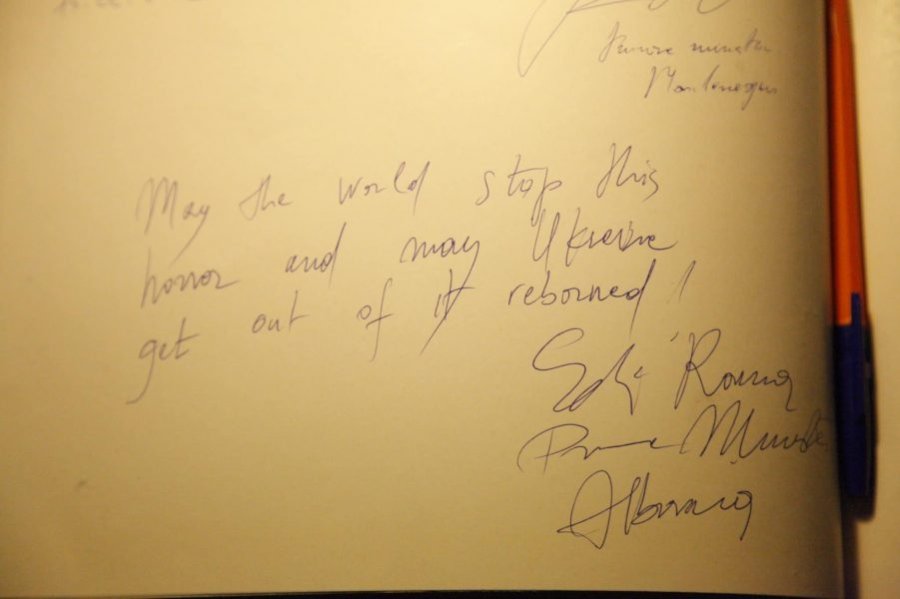 minister
Montenegro
May the world stop this
horror and may Ukraine
get out of it reborned!
Edi Rama
Prime Minister
Albania